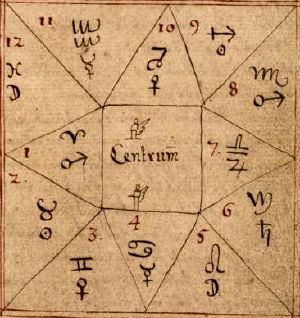 11 10 9
♐
12 ☿
♓ ♀ 8 ♏
☽ ♂
1 ♈ Centrum̄ 7. ♎
♂ ♃
2.
♉ 6 ♍
☉ 3. 4 5 ♄
♊ ♋ ♌
♀ ☿ ☽